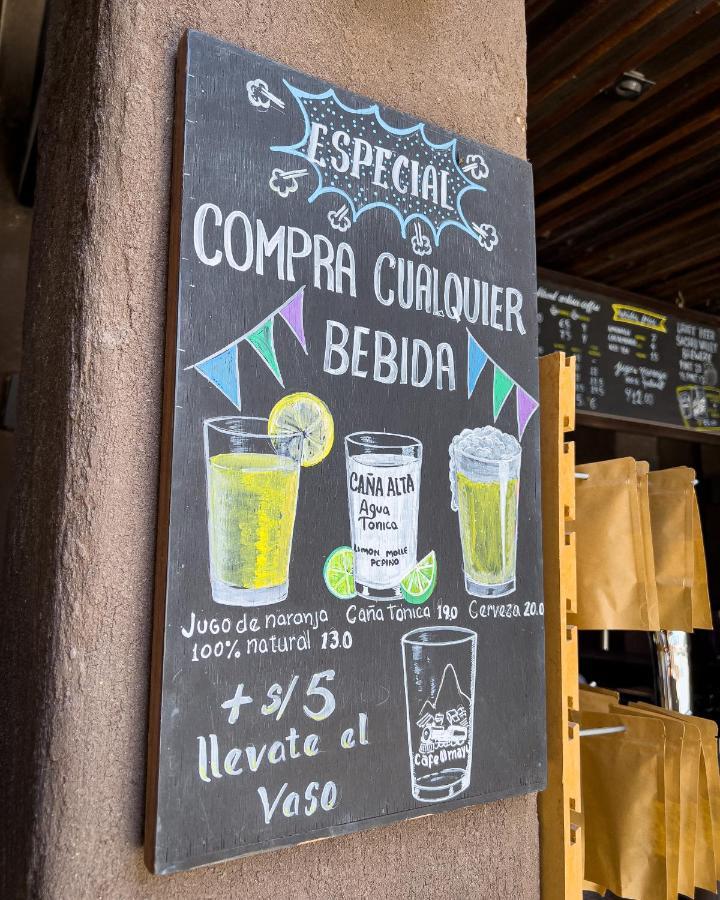 ESPECIAL
COMPRA CUALQUIER
BEBIDA
CAÑA ALTA
Agua
Tonica
LIMON MOLLE
PEPINO
Jugo de naranja
100% natural 13.0
Caña tónica 19.0
Cerveza 20.0
+ s/5
llevate el
Vaso